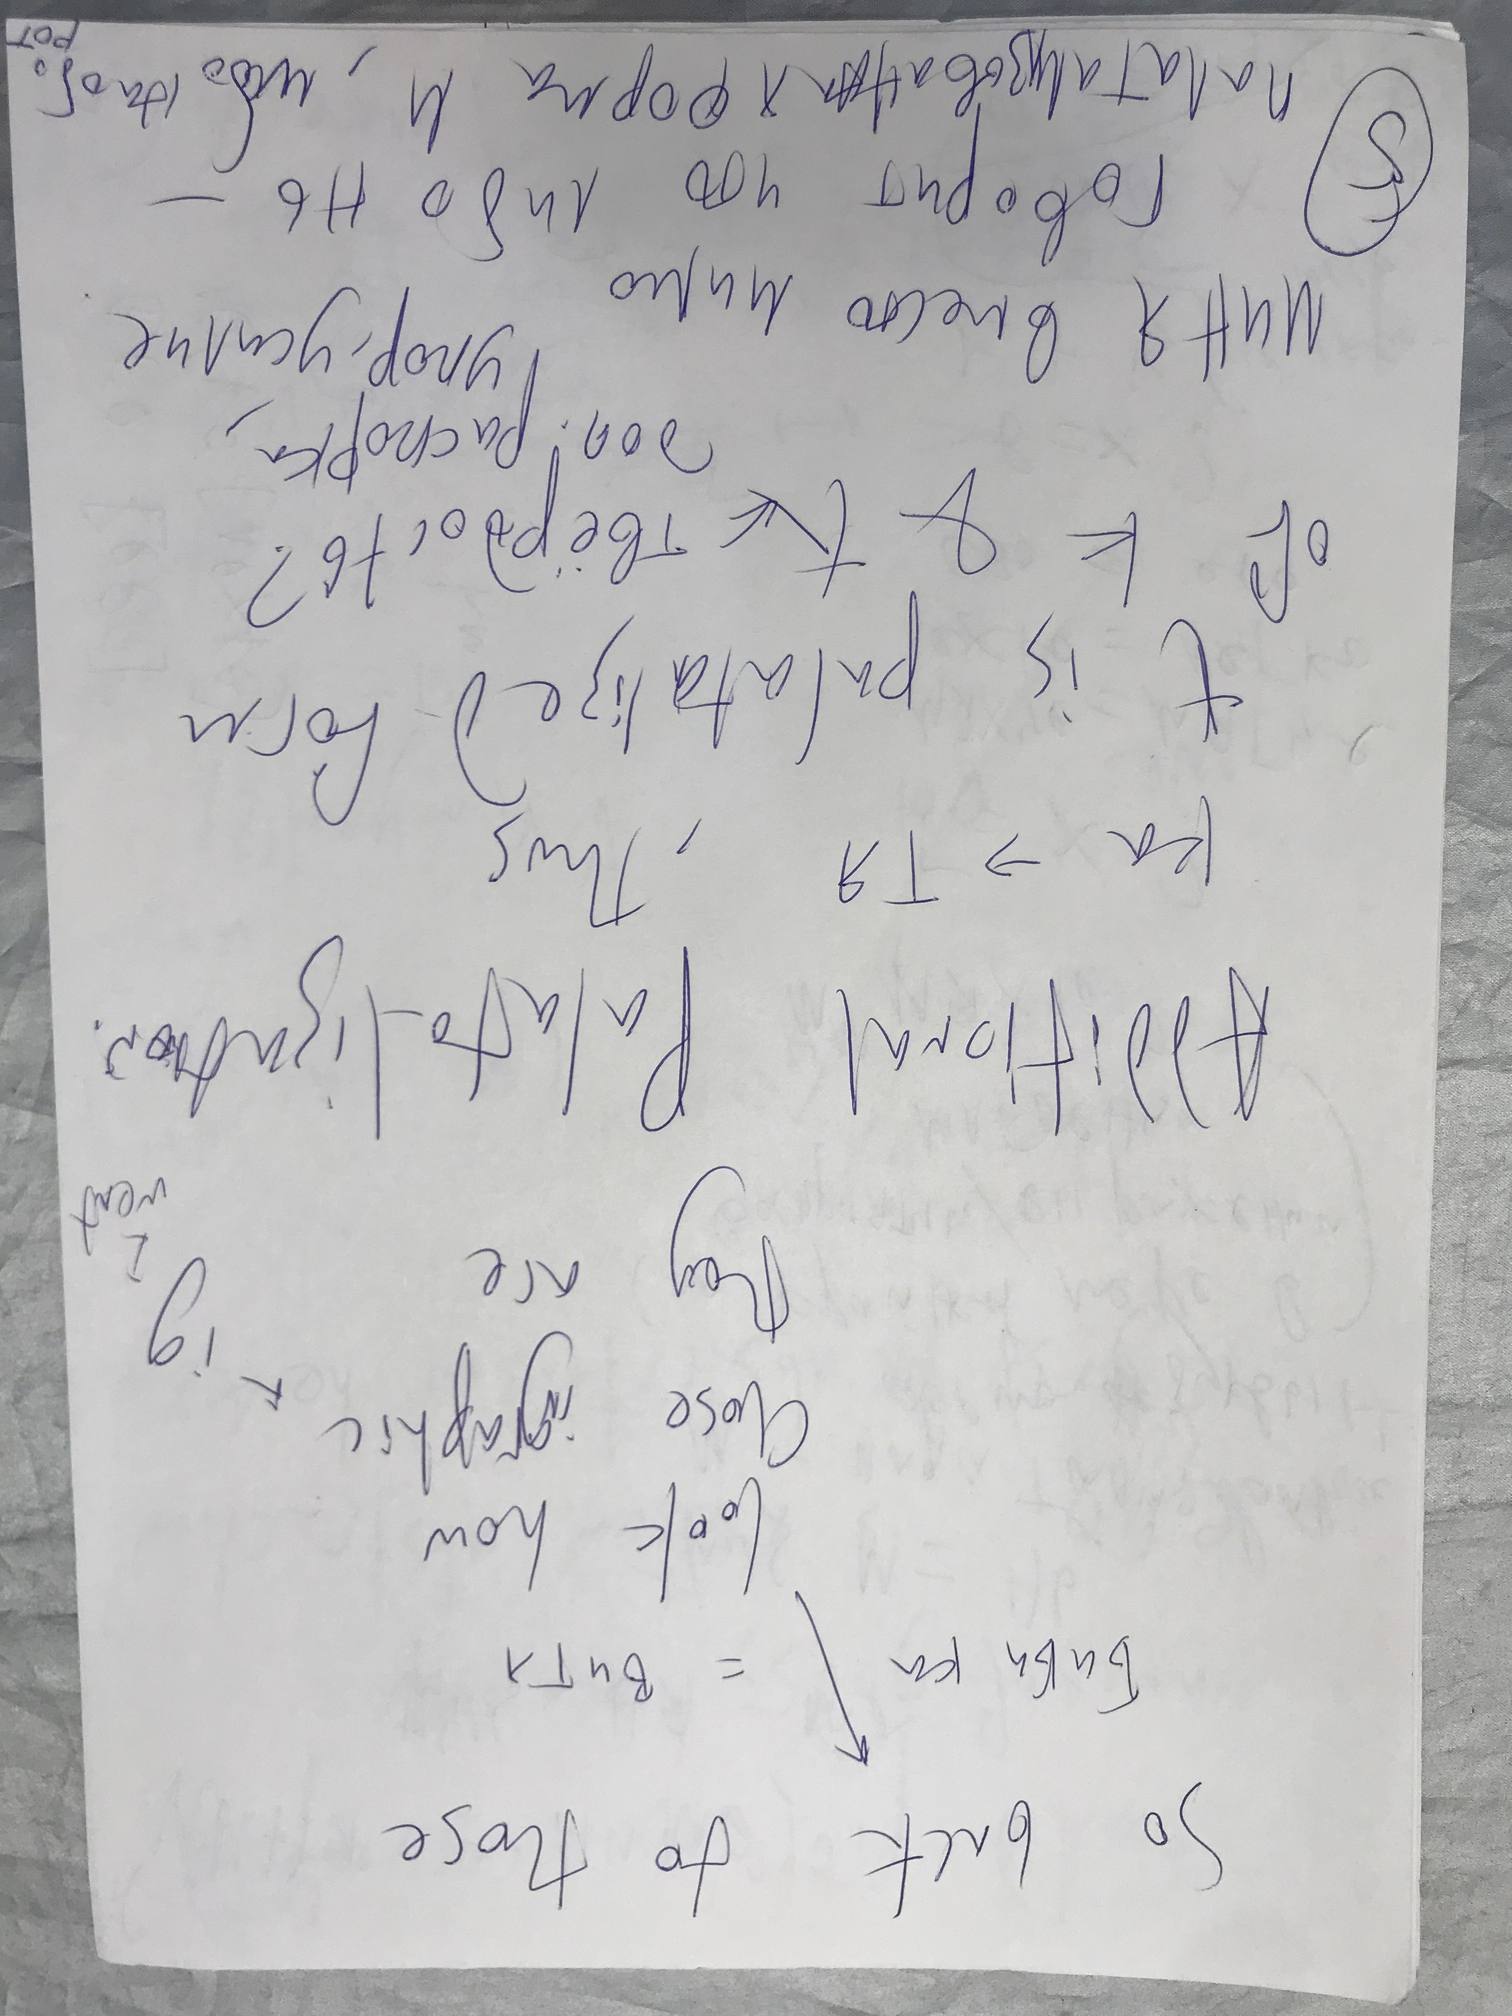 So back to those
Бибика = Витя
look how
close igraphic
they are
ig
I went
Additional Palato-lization:
ка → тя, thus
t is palatalized form
of k & t к твёрдость?
доп. распорка,
упор, усилие
Миня вместо Мимо
говорит что либо Нь –
палатализованная форма М, либо наобо
рот
5